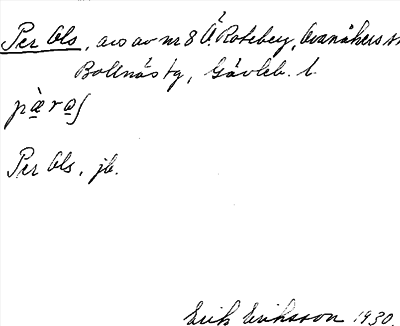 Per Ols, avs av nr 8 Ö. Roteberg, Ovanåkers sn
Bollnäs tg, Gävleb. l.
pä̀ra̲s
Per Ols, jb.
Erik Eriksson 1930.